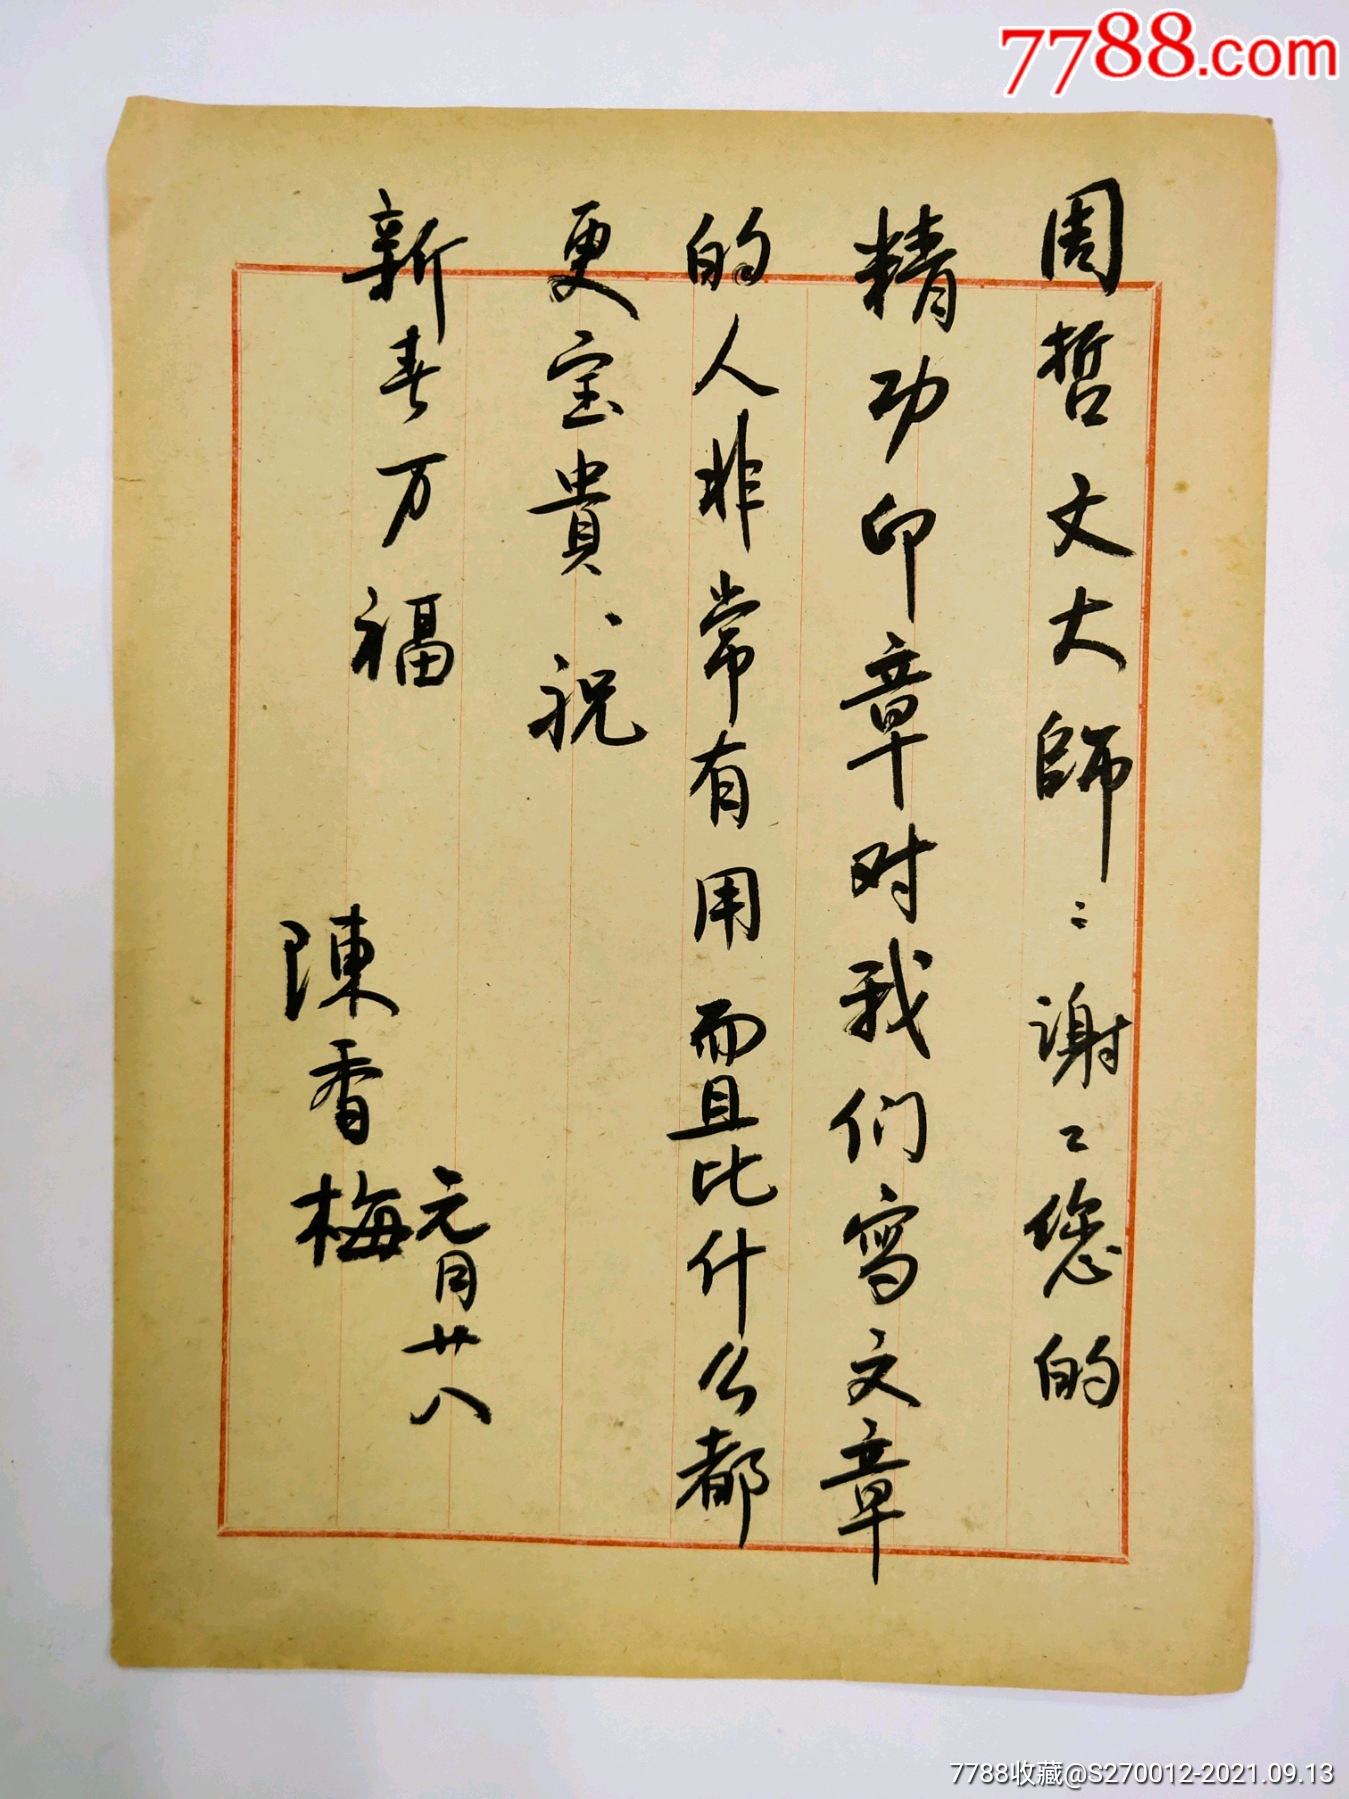 7788.com
周哲文大師：谢〻您的
精功印章对我们写文章
的人非常有用而且比什么都
更宝貴、祝
新春万福
陳香梅
元月廿八
7788收藏@S270012-2021.09.13